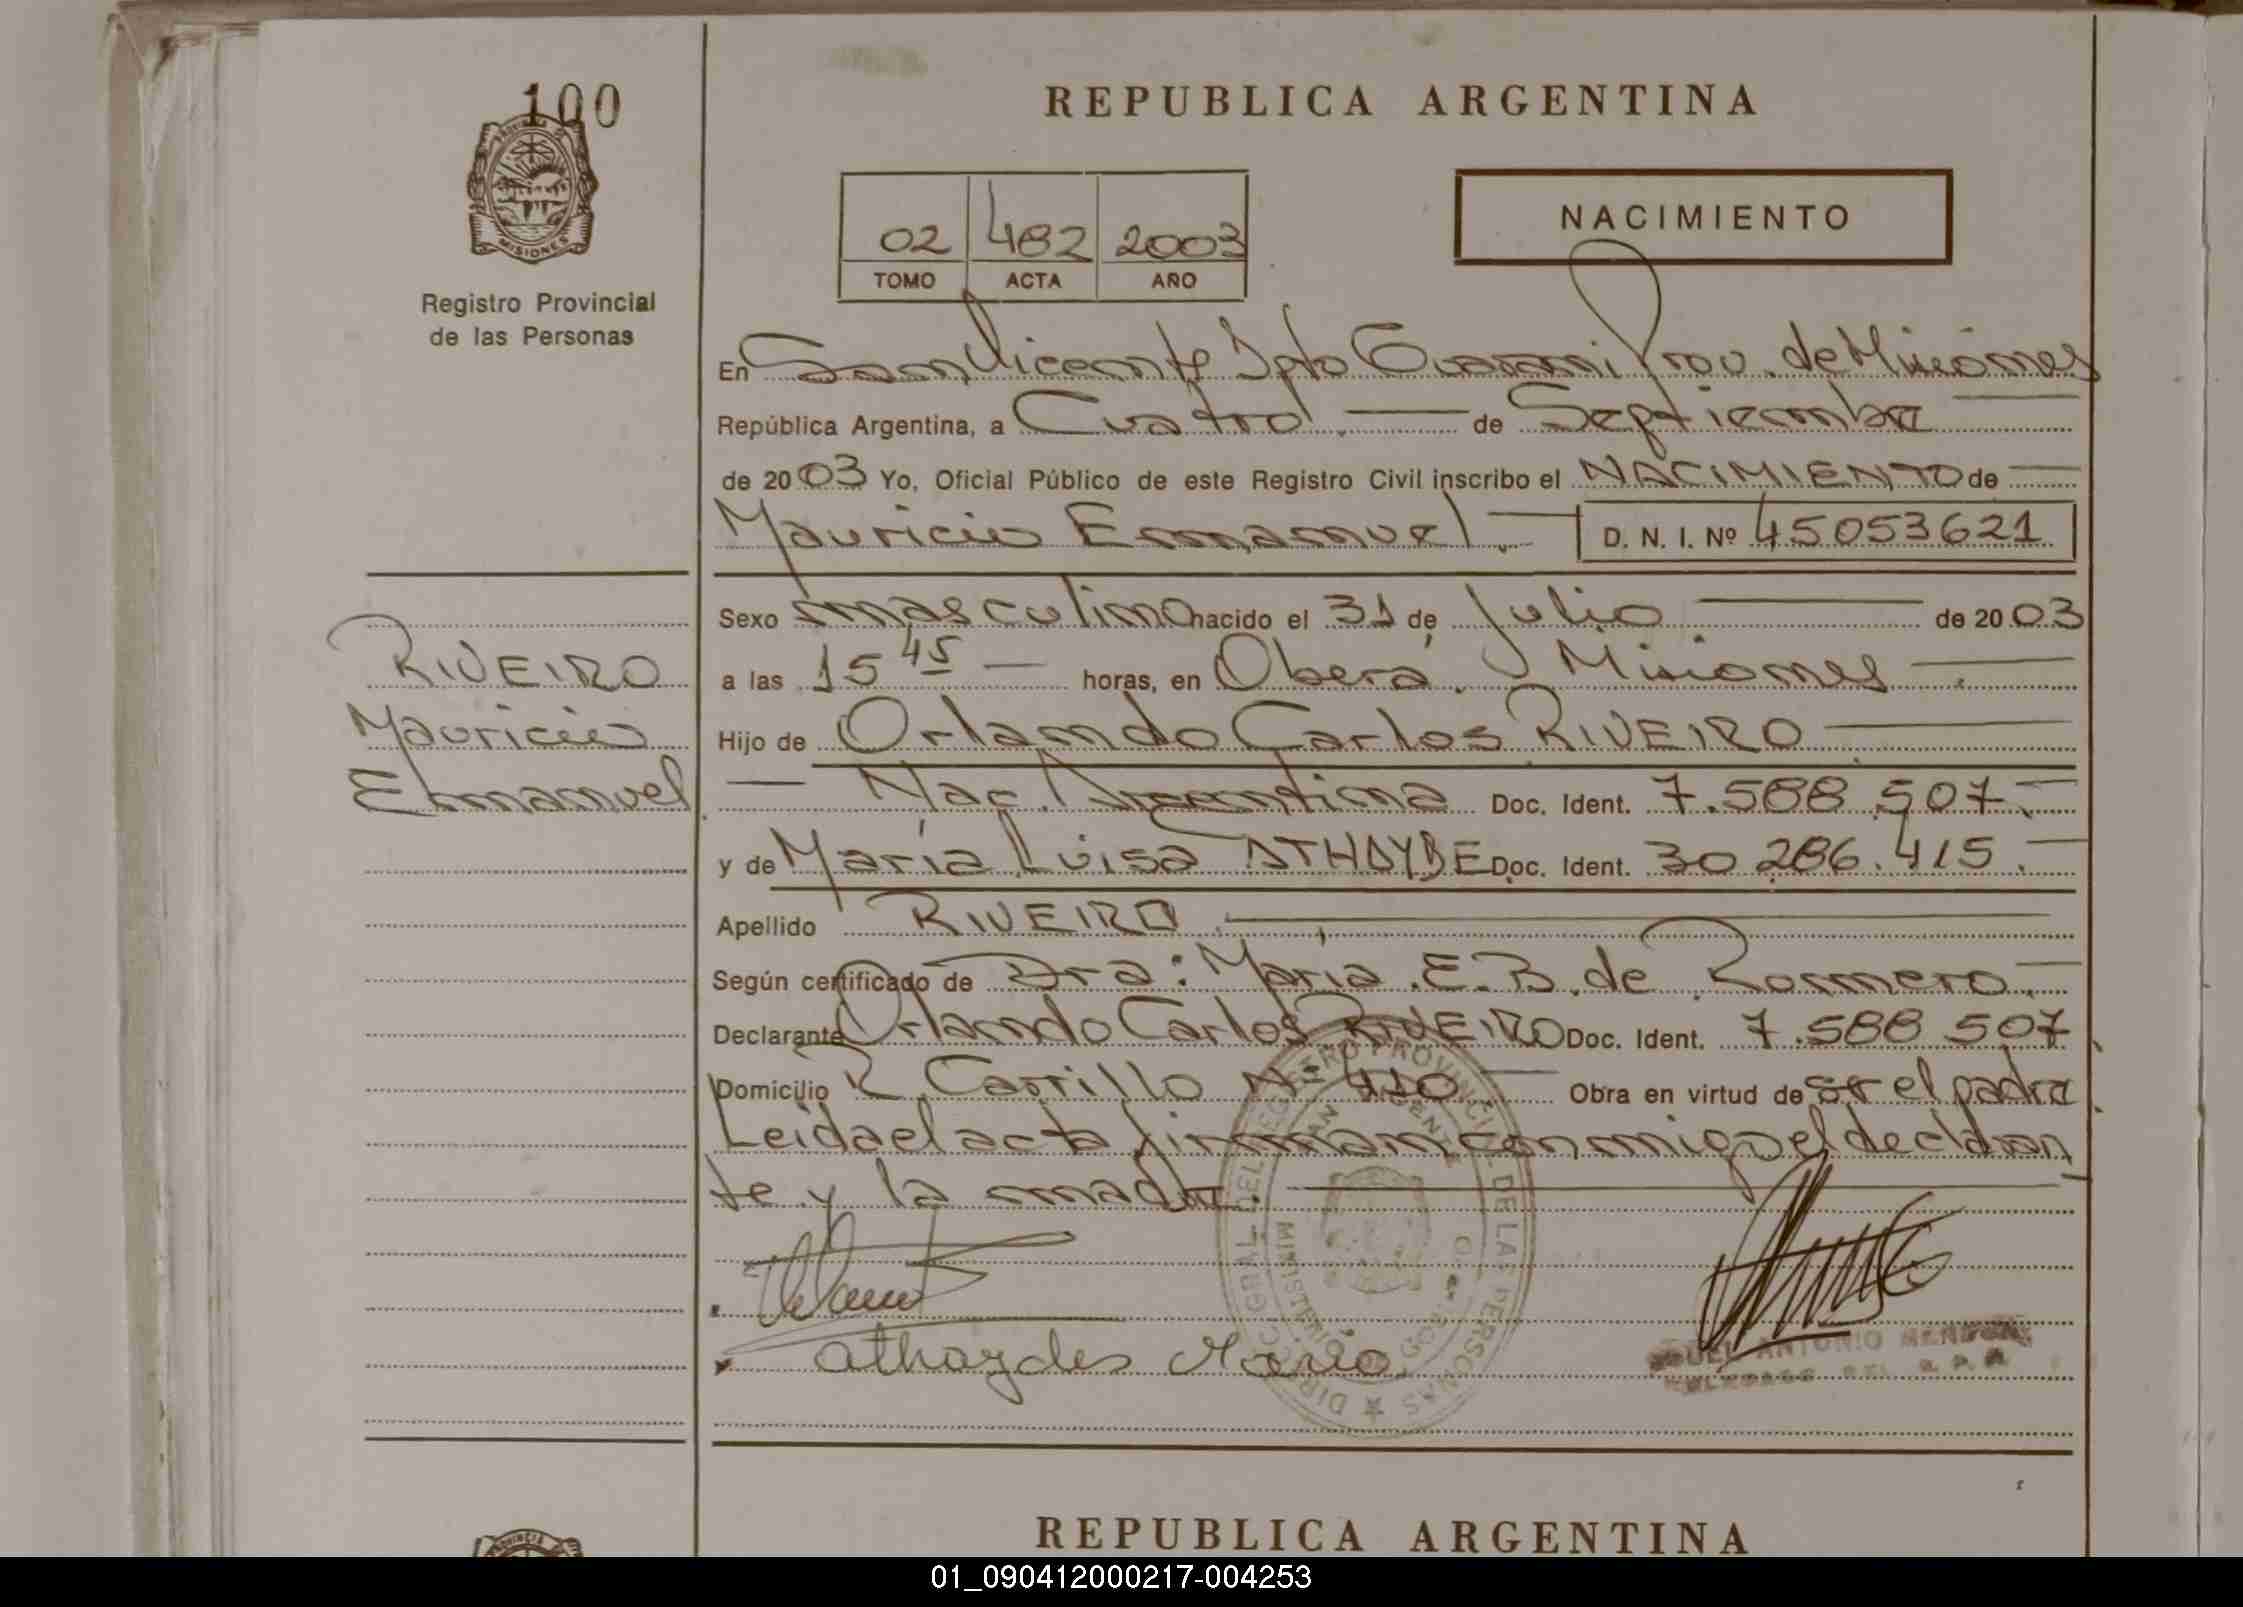 100
PROVINCIA DE
MISIONES
Registro Provincial
de las Personas
REPUBLICA ARGENTINA
NACIMIENTO
02 482 2003
TOMO ACTA AÑO
En San Vicente Dpto Guaraní Prov. de Misiones
República Argentina, a Cuatro. de Septiembre
de 2003 Yo, Oficial Público de este Registro Civil inscribo el NACIMIENTO de
Mauricio Emmanuel. D. N. I. Nº 45053621
Sexo masculino nacido el 31 de Julio de 2003
a las 15 45 horas, en Oberá. Misiones
Hijo de Orlando Carlos RIVEIRO
Nac. Argentina Doc. Ident. 7.588.507.
y de María Luisa ATHAYDE Doc. Ident. 30.286.415.
Apellido RIVEIRO
Según certificado de Dra: María.E.B.de Romero.
Declarante Orlando Carlos RIVEIRO Doc. Ident. 7.588.507
Domicilio R. Carrillo Nº 410. Obra en virtud de ser el padre
Leida el acta firman conmigo el declaran
te y la madre.
RIVEIRO
Mauricio
Emmanuel
athaydes Maria
ANTONIO
DIRECC. GRAL. DEL REGISTRO PROVINCIAL DE LAS PERSONAS
MINISTERIO
PROVINCIA
REPUBLICA ARGENTINA
01_090412000217-004253